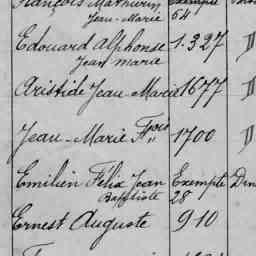 François Mathurin Exempté
Jean-Marie 64
Edouard Alphonse 1.327 D
Jean Marie
Aristide Jean-Marie 1677 D
Jean-Marie Fçois 1700 D
Emilien Félix Jean Exempté
Baptiste 28
Ernest Auguste 910